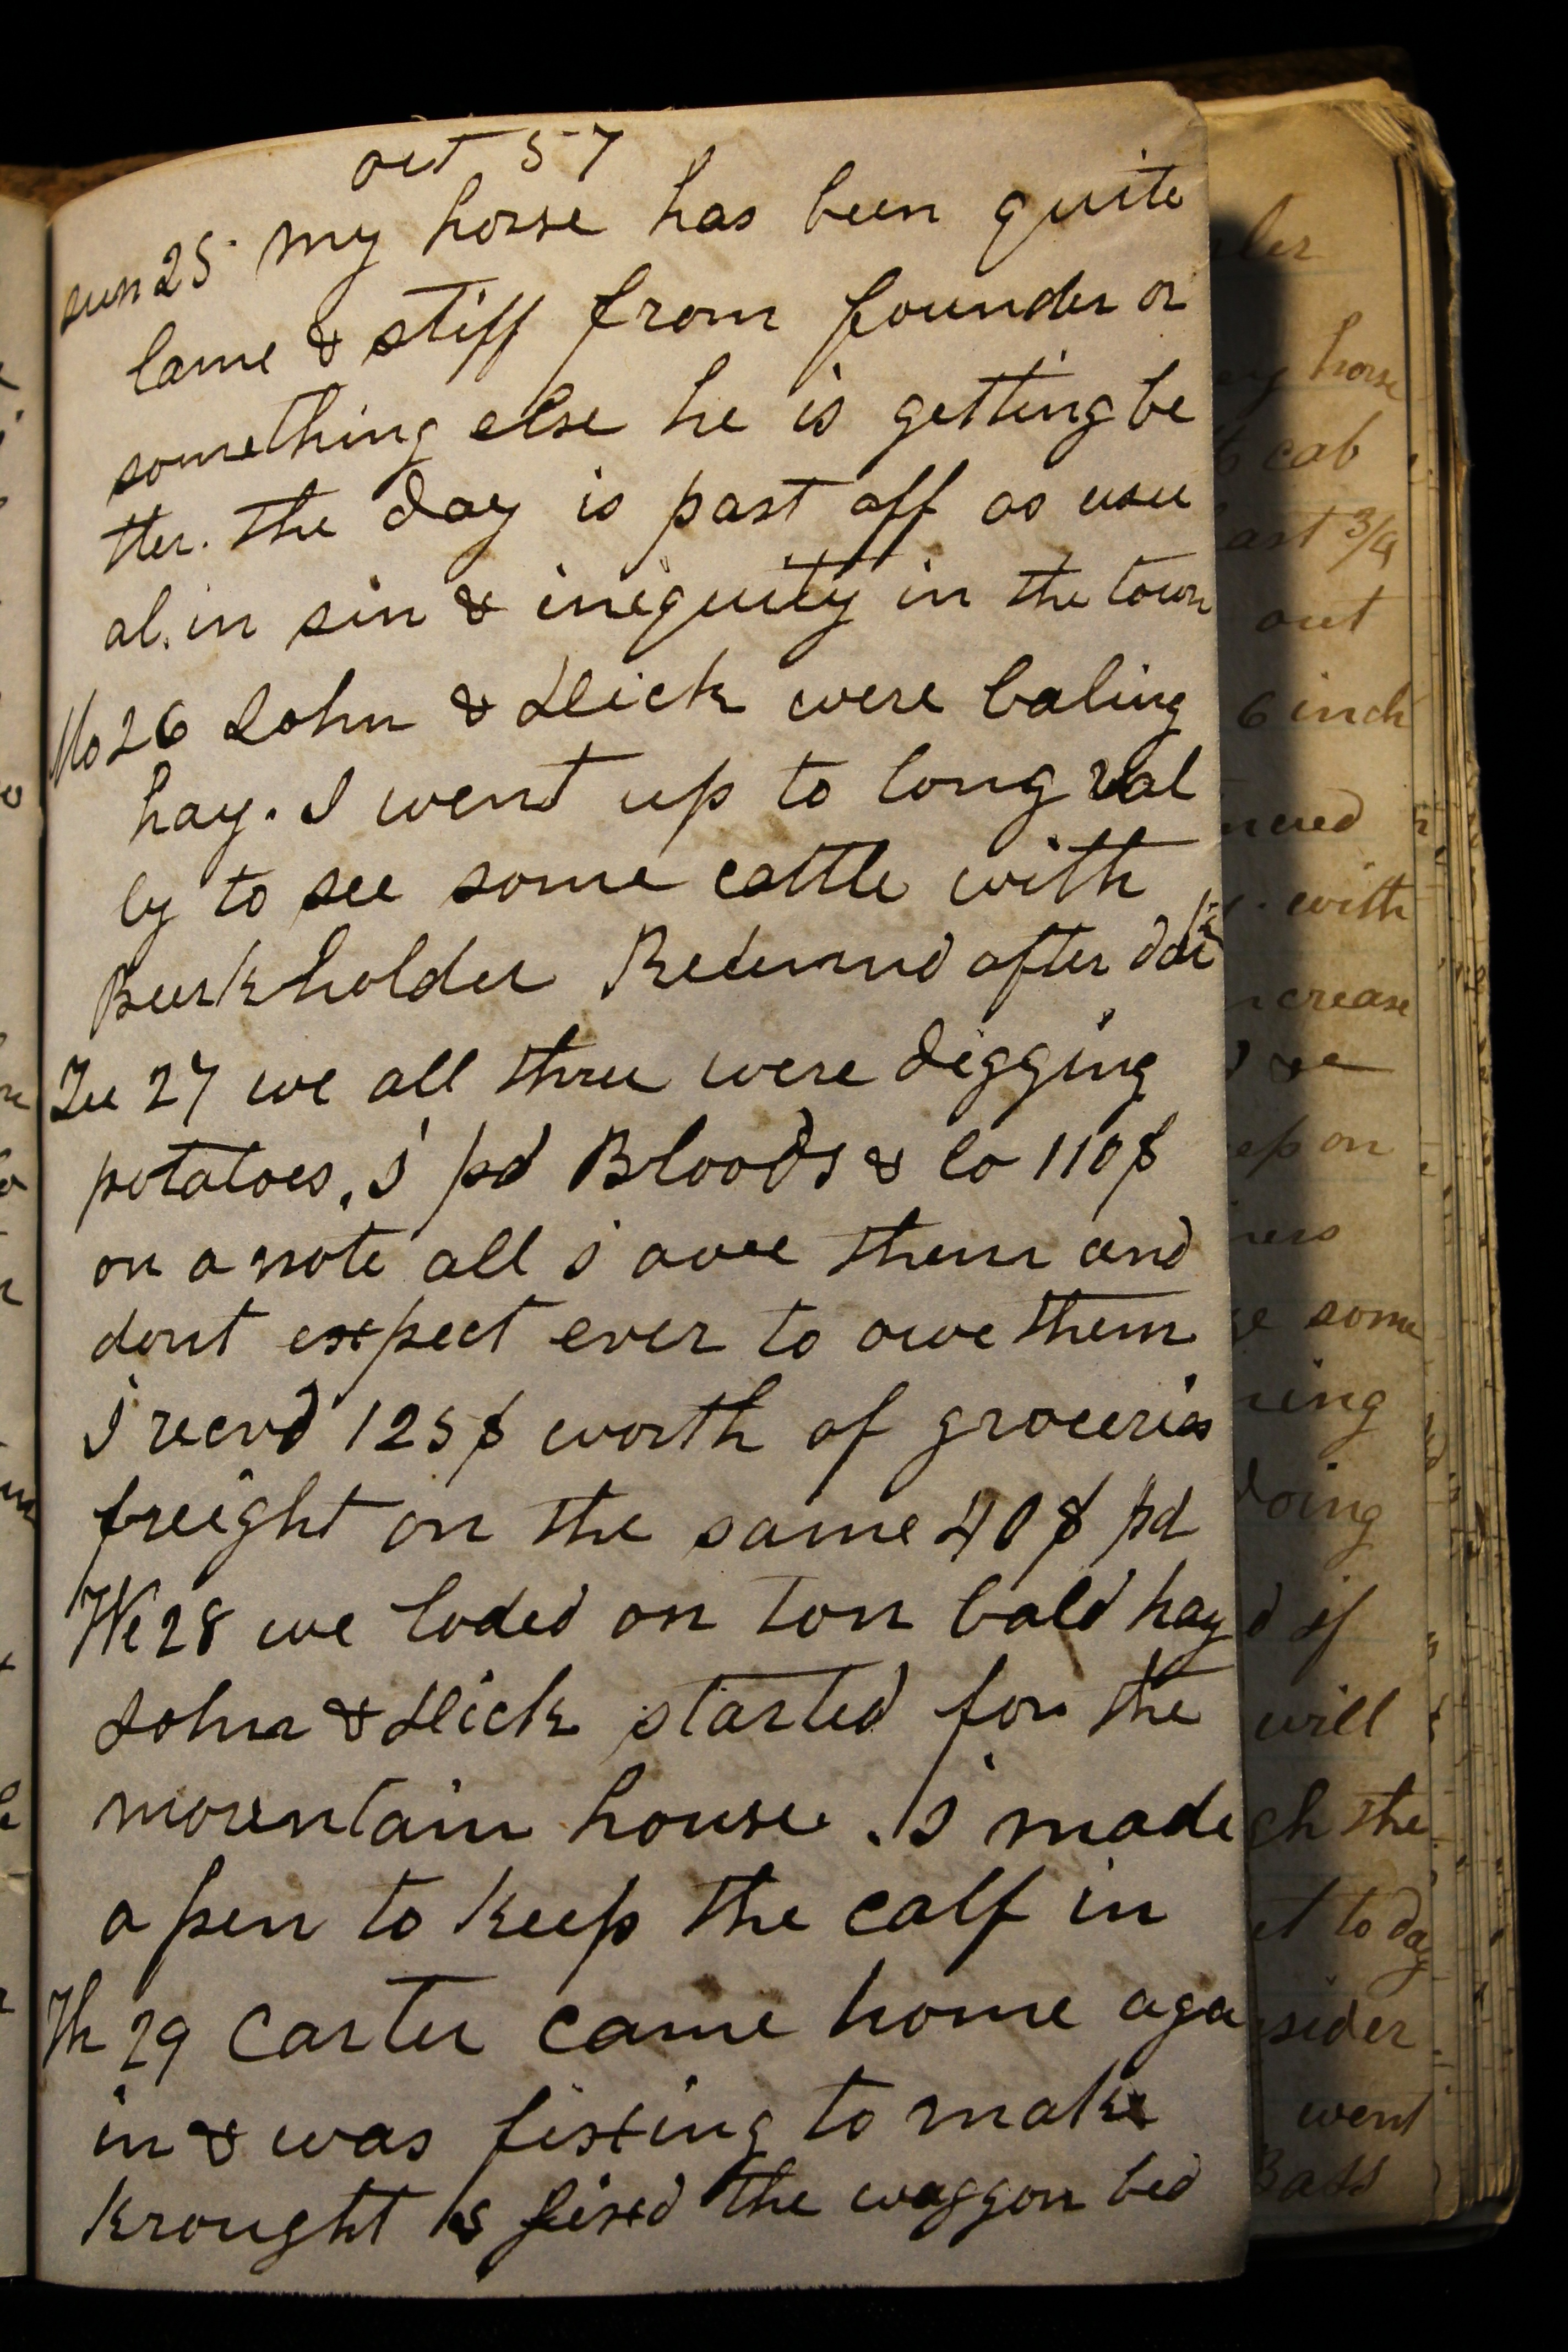 oct 57
sun 25 my horse has been quite
lame & stiff from founder or
something else he is getting be
tter. the day is past off as usu
al. in sin & inequity in the town
Mo 26 John & Dick were baling
hay. I went up to long val
ly to see some cattle with
Burkholder Returnd after dark
Tu 27 we all three were digging
potatoes. I pd Bloods & Co 110$
on a note all I owe them and
dont expect ever to owe them
I recvd 125$ worth of groceries
freight on the same 40$ pd
We 28 we loded on ton bald hay
John & Dick started for the
mountain house. I made
a pen to keep the calf in
Th 29 Carter came home aga
in & was fixing to make
krought & fixed the waggon bed
horse
cab
3/4
out
6 inch
with
crease
on
some
doing
if
will
the
to day
sider
went
Bass